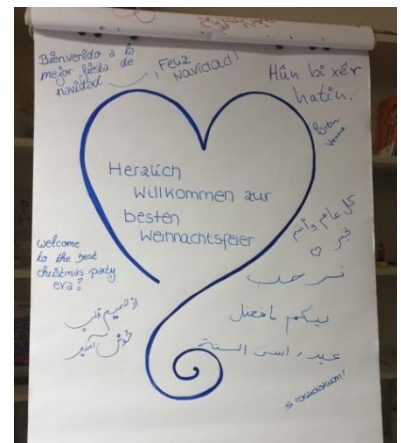 Bienvenido a la
mejor fiesta de
navidad
¡Feliz
Navidad!
Hûn bi xêr
hatin.
Bien
venue
Herzlich
Willkommen zur
besten
Weihnachtsfeier
welcome
to the best
christmas party
eva!
كل عام وأنتم
بخير
نرحب
بيكم بأفضل
عيد راس السنة
از صمیم قلب
خوش آمدید